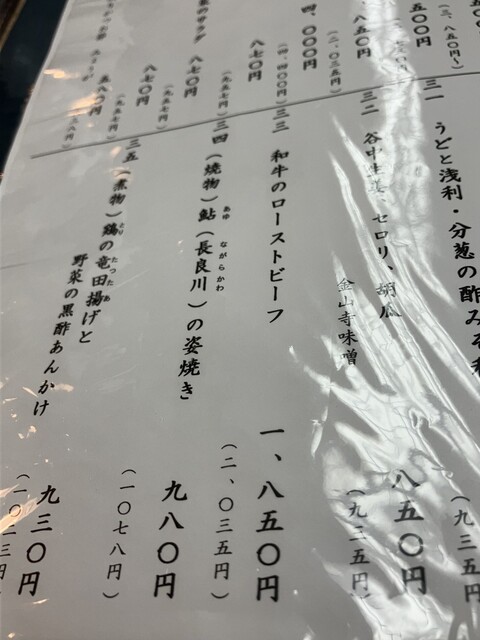 五〇〇円
八五〇円
四、〇〇〇円
(四、四〇〇円)
八七〇円
(九五七円)
八七〇円
(九五七円)
三一 うどと浅利・分葱の酢みそ
(九三五円)
三二 谷中生姜、セロリ、胡瓜
金山寺味噌
八五〇円
(九三五円)
三三 和牛のローストビーフ
一、八五〇円
(二、〇三五円)
三四 (焼物)鮎(長良川)の姿焼き
あゆ ながらかわ
九八〇円
(一〇七八円)
三五 (煮物)鶏の竜田揚げと
とり たつたあ
野菜の黒酢あんかけ
九三〇円
(一〇二三円)